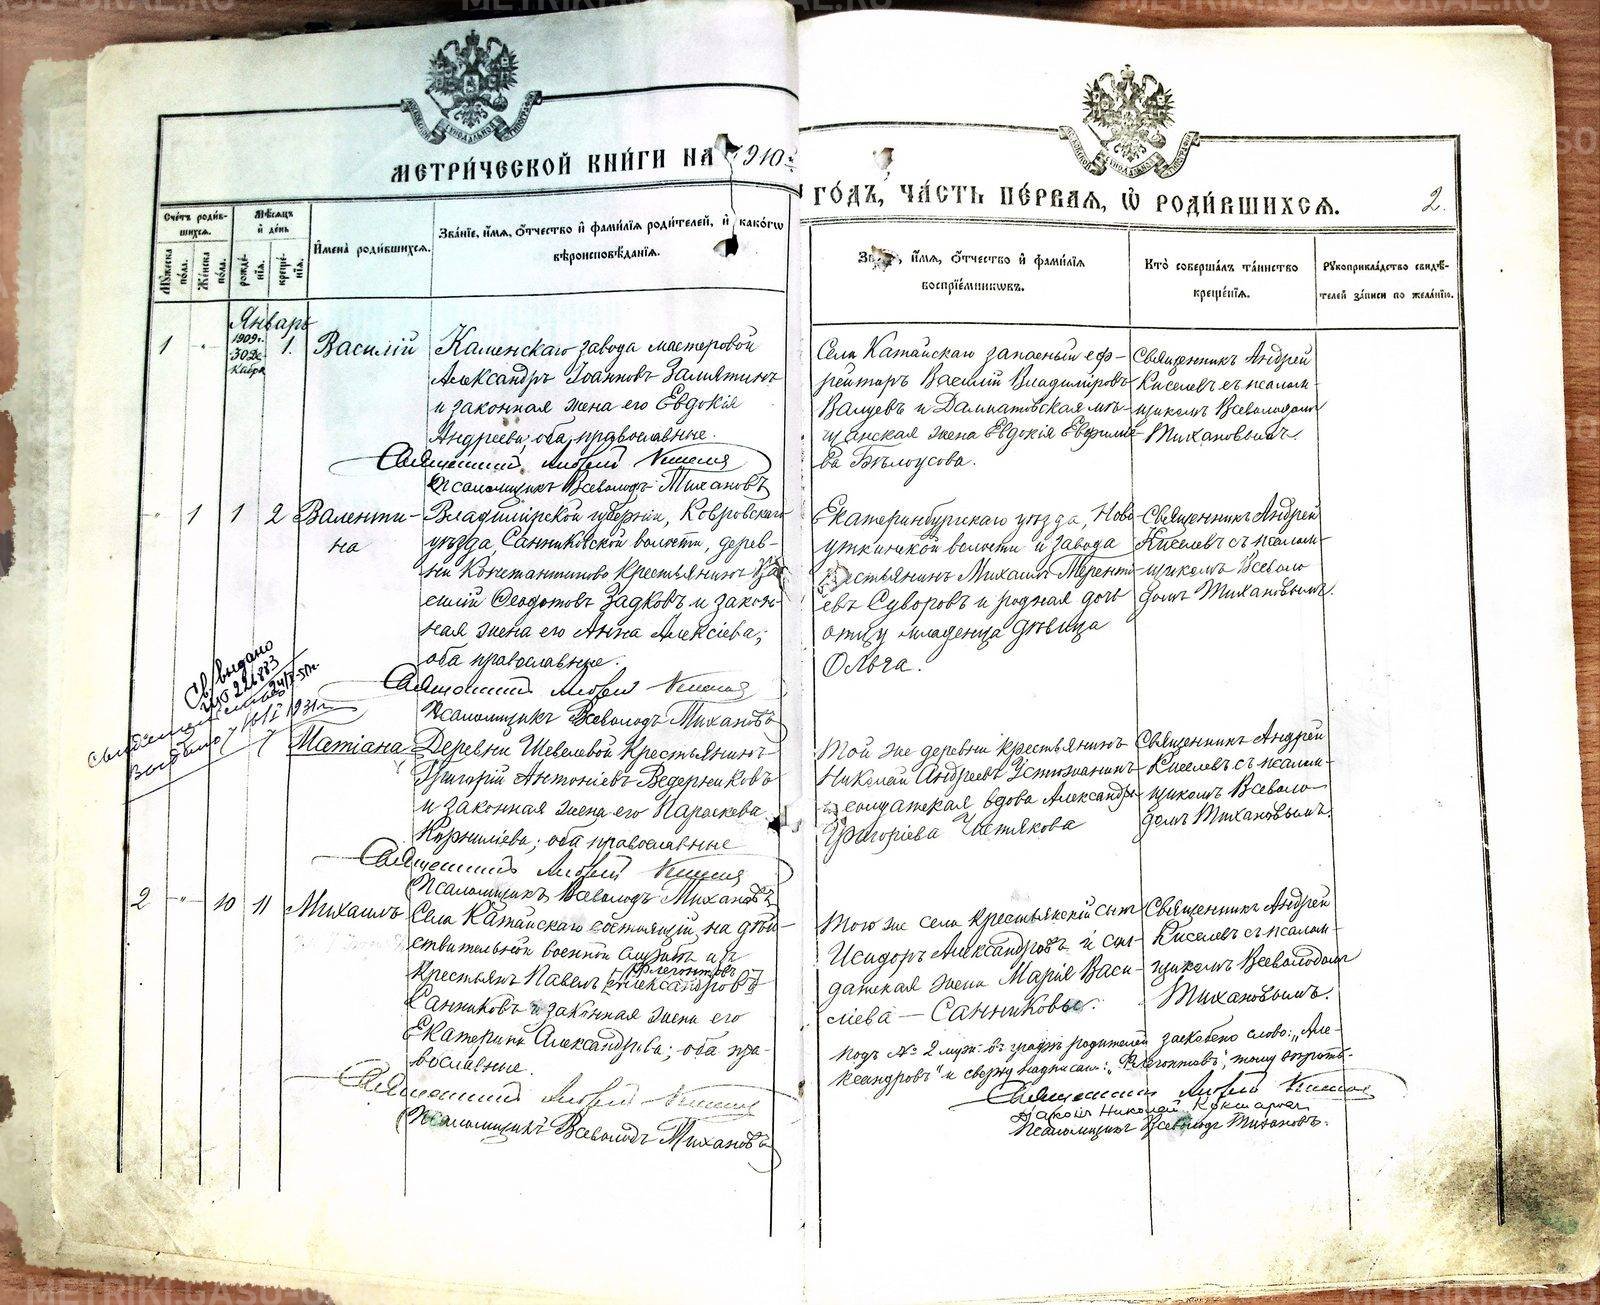 METRIKI.GASO-URAL.RU
МЕТРИ́ЧЕСКОЙ КНИ́ГИ НА 1910й
ГО́ДЪ, ЧА́СТЬ ПЕ́РВАЯ, Ѡ҆ РОДИ́ВШИХСЯ.
2.
Сче́тъ роди́в-
шихся.
Мꙋ́жеска по́ла.
Же́нска по́ла.
Мѣ́сяцъ и҆ де́нь
рожде́нія.
креще́нія.
И҆мена̀ роди́вшихся.
Зва́ніе, и҆́мя, ѻ҆́тчество и҆ фами́лія роди́телей, и҆ како́гѡ
вѣроисповѣ́данія.
и҆́мя, ѻ҆́тчество и҆ фами́лія
воспріе́мникѡвъ.
Кто̀ соверша́лъ та́инство
креще́нія.
Рꙋкоприкла́дство свидѣ́-
телей за́писи по жела́нію.
Январь
1 - " - 1909 г. 30 Декабря 1. Василій
Каменскаго завода мастеровой
Александръ Іоанновъ Замятинъ
и законная жена его Евдокія
Андреева, оба православные.
Священникъ Андрей Киселевъ
Псаломщикъ Всеволодъ Тихановъ
Села Катайскаго запасный еф-
рейторъ Василій Владиміровъ
Валуевъ и Далматовская мѣ-
щанская жена Евдокія Евфиміе-
ва Бѣлоусова.
Священникъ Андрей
Киселевъ съ псалом-
щикомъ Всеволодомъ
Тихановымъ.
" 1 1 2 Валенти-
на
Владимірской губерніи, Ковровскаго
уѣзда, Санниковской волости, дерев-
ни Константиново крестьянинъ Ва-
силій Ѳеодотовъ Задковъ и закон-
ная жена его Анна Алексіева;
оба православные.
Священникъ Андрей Киселевъ
Псаломщикъ Всеволодъ Тихановъ
Екатеринбургскаго уѣзда, Ново
уткинской волости и завода
крестьянинъ Михаилъ Теренті-
евъ Суворовъ и родная дочь
отцу младенца дѣвица
Ольга.
Священникъ Андрей
Киселевъ съ псалом-
щикомъ Всеволо-
домъ Тихановымъ.
Св. выдано
Выдано 10/I 1931 г.
7 7 Татіана
Деревни Шевелевой крестьянинъ
Григорій Антоніевъ Ведерниковъ
и законная жена его Параскева
Корниліева; оба православные
Священникъ Андрей Киселевъ
Псаломщикъ Всеволодъ Тихановъ
Той же деревни крестьянинъ
Николай Андреевъ Устюжанинъ
и солдатская вдова Александра
Григоріева Чистякова
Священникъ Андрей
Киселевъ съ псалом-
щикомъ Всеволо-
домъ Тихановымъ.
2 - " - 10 11 Михаилъ
Села Катайскаго состоящій на дѣй-
ствительной военной службѣ изъ
Флегонтовъ
крестьянъ Павелъ [Александровъ]
Санниковъ и законная жена его
Екатерина Александрова; оба пра-
вославные.
Священникъ Андрей Киселевъ
Псаломщикъ Всеволодъ Тихановъ
Того же села крестьянскій сынъ
Исидоръ Александровъ и сол-
датская жена Марія Васи-
ліева — Санниковы.
Священникъ Андрей
Киселевъ съ псалом-
щикомъ Всеволодомъ
Тихановымъ.
Подъ № 2 муж. въ графѣ родителей заскоблено слово: „Але-
ксандровъ" и сверху надписано: „Флегонтовъ",
Священникъ Андрей Киселевъ
Діаконъ Николай
Псаломщикъ Всеволодъ Тихановъ.
METRIKI.GASO-URAL.RU